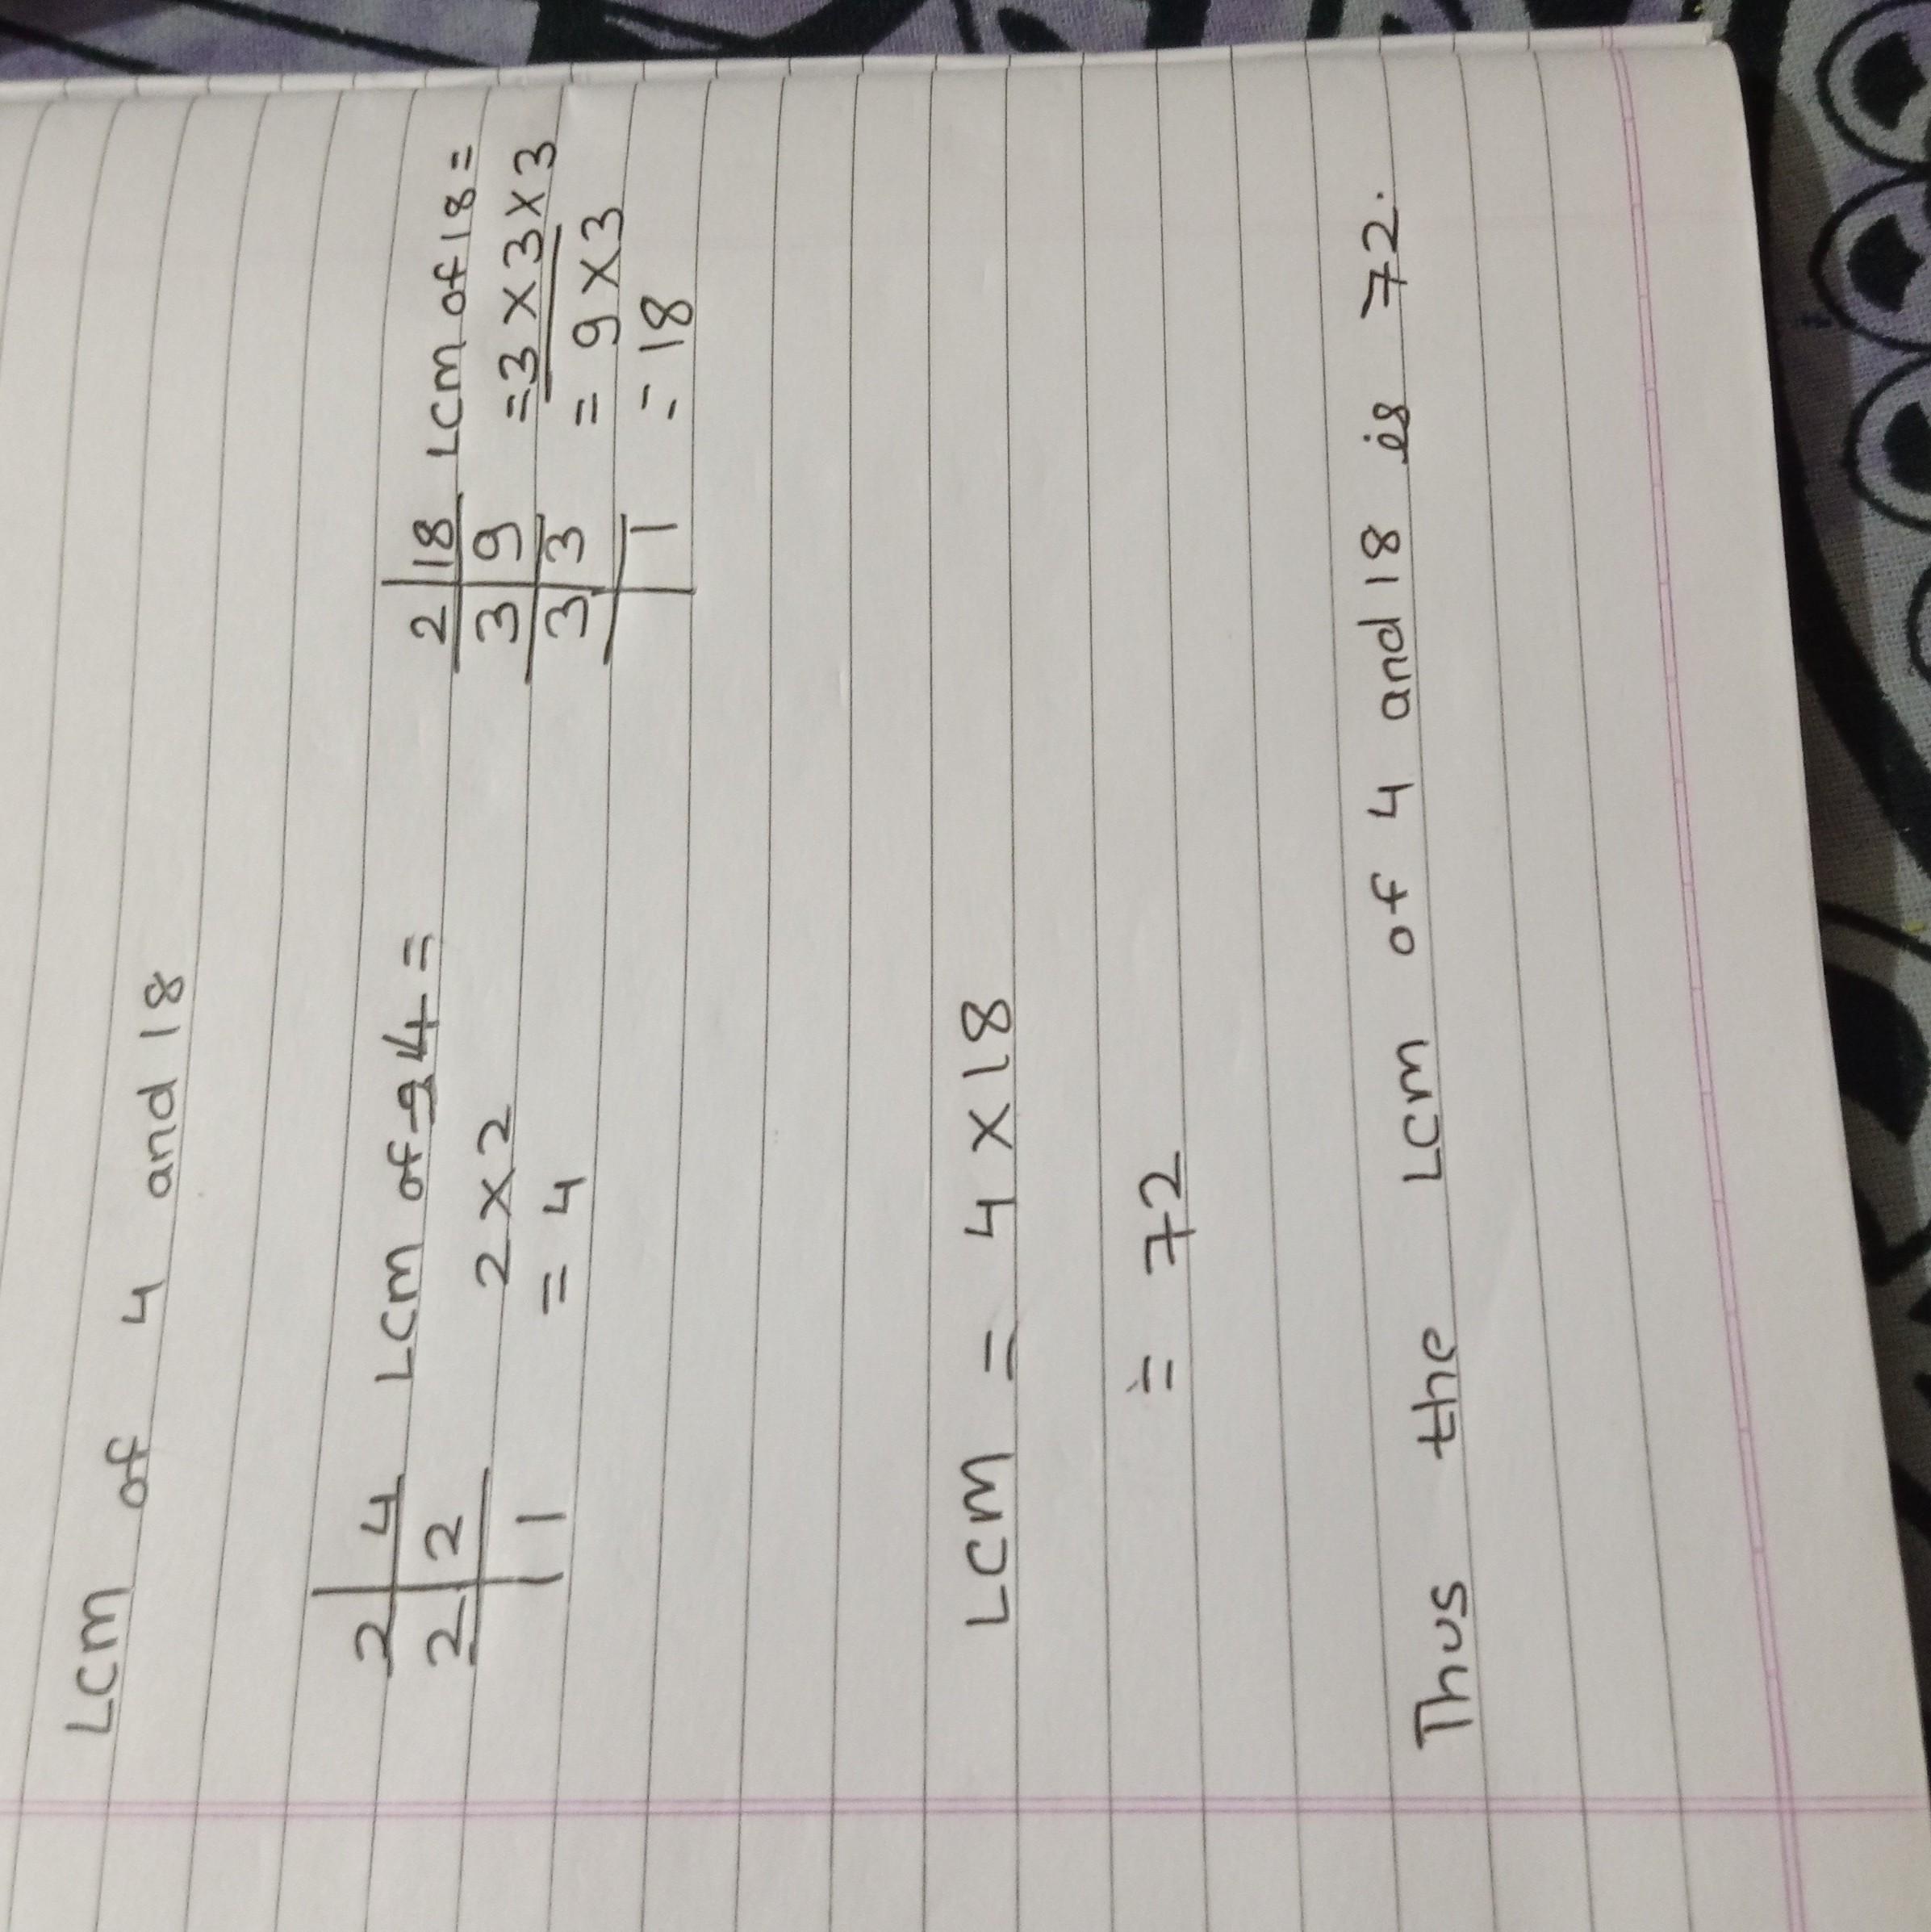 LCM of 4 and 18
2 4 LCM of 4 =
2 2 2 × 2
1 = 4
2 18 LCM of 18 =
3 9 = 3 × 3 × 3
3 3 = 9 × 3
1 = 18
LCM = 4 × 18
= 72
Thus the LCM of 4 and 18 is 72.